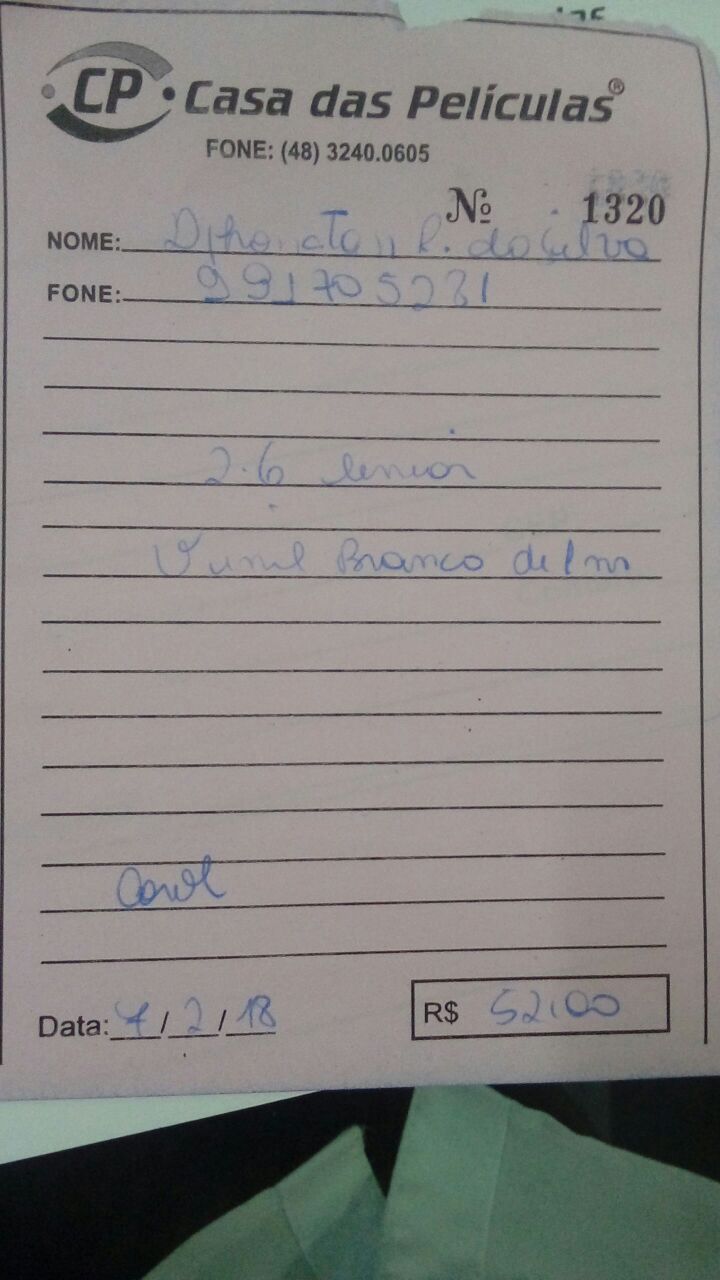 CP Casa das Películas®
FONE: (48) 3240.0605
Nº 1320
NOME: R. da Silva
FONE: 991705231
2.6
Vinil Branco de 1 m
Carol
Data: 7/2/18 R$ 52,00